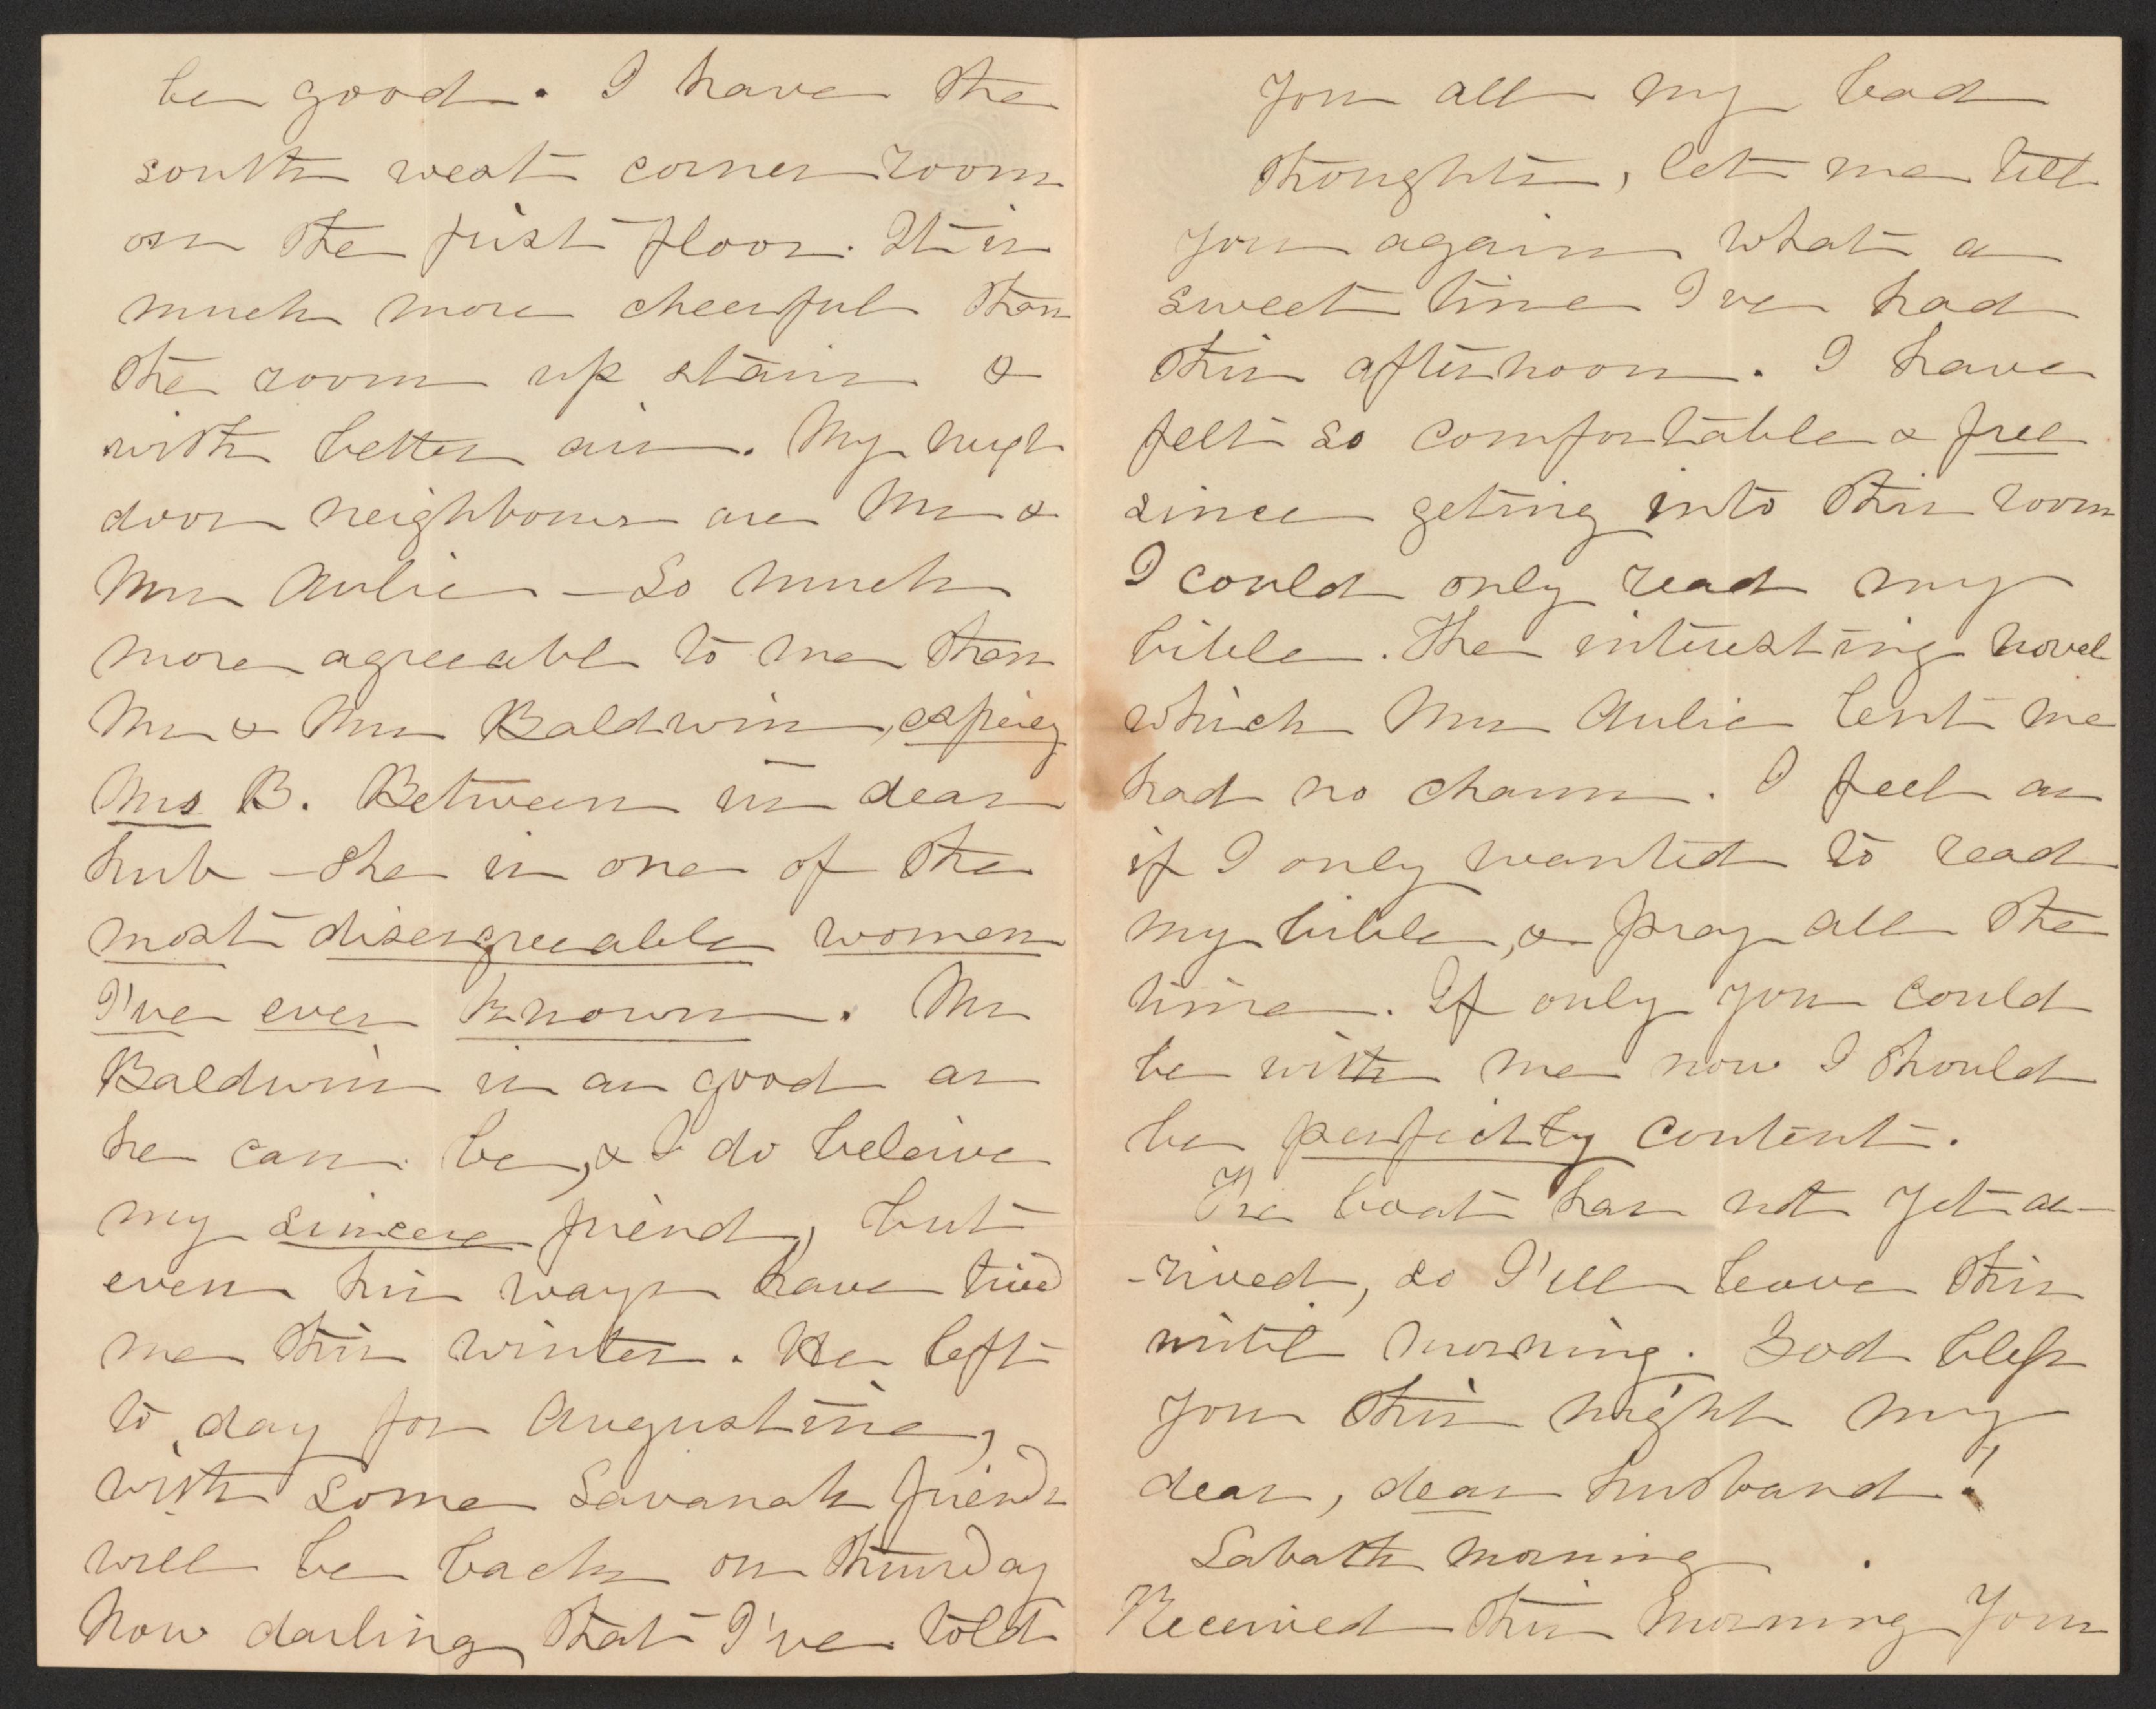 be good. I have the
south west corner room
on the first floor. It is
much more cheerful than
the room up stairs &
with better air. My next
door neighbours are Mr &
Mrs Aulic – So much
more agreeable to me than
Mr & Mrs Baldwin,
Mrs B. Between us dear
hub – she is one of the
most disengreeable women
I've ever known. Mr
Baldwin is as good as
he can be, & I do beleive
my sincere friend, but
even his ways have tried
me this winter. He left
to day for Augustine,
with some Savanah friends
will be back on Thursday
Now darling that I've told
you all my bad
thoughts, let me tell
you again what a
sweet time I've had
this afternoon. I have
felt so comfortable & free
since geting into this room
I could only read my
bible. The interesting novel
which Mrs Aulic lent me
had no charm. I feel as
if I only wanted to read
my bible, & pray all the
time. If only you could
be with me now I should
be perfectly content.
The boat has not yet ar-
-rived, so I'll leave this
until morning. God bless
you this night my
dear, dear husband!
Sabath morning.
Received this morning your